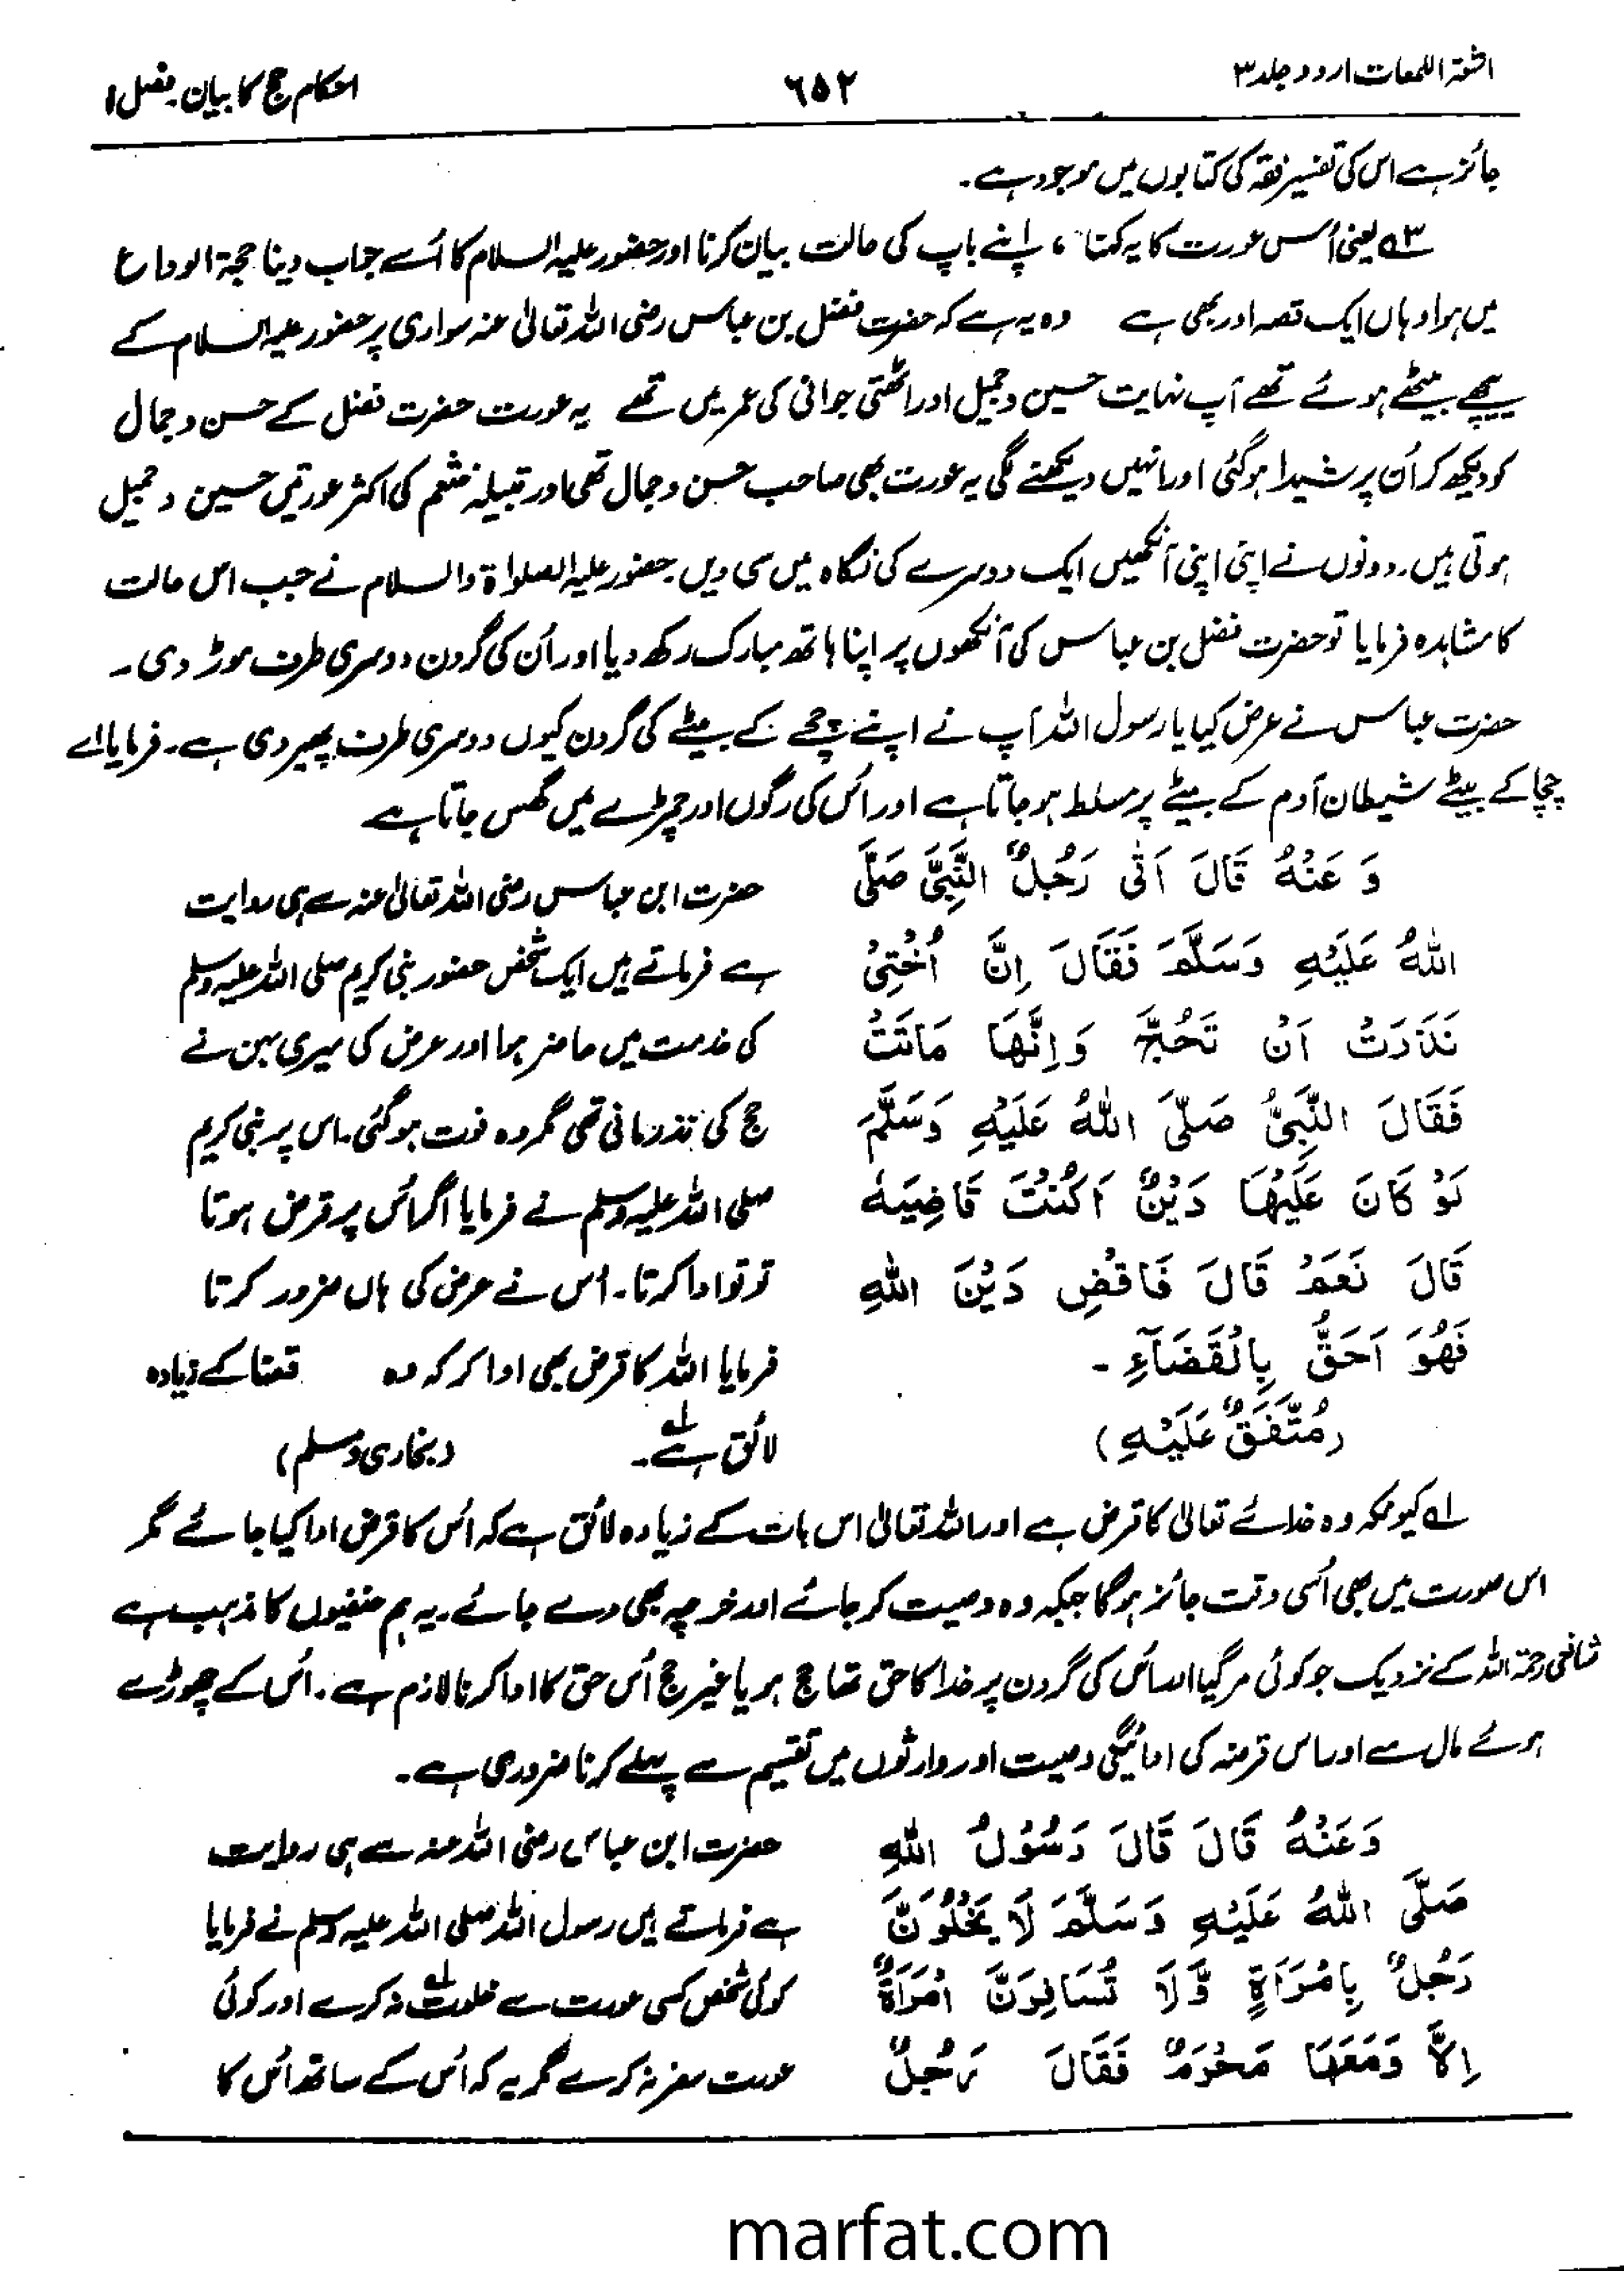 اشعۃ اللمعات اردو جلد ۳
۶۵۲
احکام حج کا بیان۔ فصل ۱
جائز ہے اس کی تفسیر فقہ کی کتابوں میں موجود ہے۔
۳ یعنی اُس عورت کا یہ کہنا، اپنے باپ کی حالت بیان کرنا اور حضور علیہ السلام کا اُسے جواب دینا حجۃ الوداع
میں ہوا وہاں ایک قصہ اور بھی ہے وہ یہ ہے کہ حضرت فضل بن عباس رضی اللہ تعالیٰ عنہ سواری پر حضور علیہ السلام کے
پیچھے بیٹھے ہوئے تھے آپ نہایت حسین و جمیل اور اٹھتی جوانی کی عمر میں تھے یہ عورت حضرت فضل کے حسن و جمال
کو دیکھ کر اُن پر شیدا ہوگئی اور انہیں دیکھنے لگی یہ عورت بھی صاحب حسن و جمال تھی اور قبیلہ خثعم کی اکثر عورتیں حسین و جمیل
ہوتی ہیں۔ دونوں نے اپنی اپنی آنکھیں ایک دوسرے کی نگاہ میں سی دیں۔ حضور علیہ الصلواۃ والسلام نے جب اس حالت
کا مشاہدہ فرمایا تو حضرت فضل بن عباس کی آنکھوں پر اپنا ہاتھ مبارک رکھ دیا اور اُن کی گردن دوسری طرف موڑ دی۔
حضرت عباس نے عرض کیا یا رسول اللہ آپ نے اپنے چچے کے بیٹے کی گردن کیوں دوسری طرف پھیر دی ہے۔ فرمایا اے
چچا کے بیٹے شیطان آدم کے بیٹے پر مسلط ہو جاتا ہے اور اُس کی رگوں اور چمڑے میں گھس جاتا ہے
وَ عَنْهُ قَالَ اَتٰی رَجُلٌ النَّبِیَّ صَلَّی
اللهُ عَلَیْهِ وَسَلَّمَ فَقَالَ اِنَّ اُخْتِیْ
نَذَرَتْ اَنْ تَحُجَّ وَاِنَّهَا مَاتَتْ
فَقَالَ النَّبِیُّ صَلَّی اللهُ عَلَیْهِ وَسَلَّمَ
لَوْ کَانَ عَلَیْهَا دَیْنٌ اَکُنْتَ قَاضِیَهٗ
قَالَ نَعَمْ قَالَ فَاقْضِ دَیْنَ اللهِ
فَهُوَ اَحَقُّ بِالْقَضَآءِ ۔
(مُتَّفَقٌ عَلَیْهِ)
حضرت ابن عباس رضی اللہ تعالیٰ عنہ سے ہی روایت
ہے فرماتے ہیں ایک شخص حضور نبی کریم صلی اللہ علیہ وسلم
کی خدمت میں حاضر ہوا اور عرض کی میری بہن نے
حج کی نذر مانی تھی مگر وہ فوت ہوگئی۔ اس پر نبی کریم
صلی اللہ علیہ وسلم نے فرمایا اگر اُس پر قرض ہوتا
تو تو ادا کرتا۔ اُس نے عرض کی ہاں ضرور کرتا
فرمایا اللہ کا قرض بھی ادا کر کہ وہ قضا کے زیادہ
لائق ہے۱۔ (بخاری و مسلم)
۱ کیونکہ وہ خدائے تعالیٰ کا قرض ہے اور اللہ تعالیٰ اس بات کے زیادہ لائق ہے کہ اُس کا قرض ادا کیا جائے مگر
اس صورت میں بھی اُسی وقت جائز ہوگا جبکہ وہ وصیت کر جائے اور خرچہ بھی دے جائے۔ یہ ہم حنفیوں کا مذہب ہے
شافعی رحمۃ اللہ کے نزدیک جو کوئی مر گیا اور اُس کی گردن پر خدا کا حق تھا حج ہو یا غیر حج اُس حق کا ادا کرنا لازم ہے۔ اُس کے چھوڑے
ہوئے مال سے اور اس قرضہ کی ادائیگی وصیت اور وارثوں میں تقسیم سے پہلے کرنا ضروری ہے۔
وَعَنْهُ قَالَ قَالَ رَسُوْلُ اللهِ
صَلَّی اللهُ عَلَیْهِ وَسَلَّمَ لَا یَخْلُوَنَّ
رَجُلٌ بِامْرَاَةٍ وَّلَا تُسَافِرَنَّ امْرَاَةٌ
اِلَّا وَمَعَهَا مَحْرَمٌ فَقَالَ رَجُلٌ
حضرت ابن عباس رضی اللہ عنہ سے ہی روایت
ہے فرماتے ہیں رسول اللہ صلی اللہ علیہ وسلم نے فرمایا
کوئی شخص کسی عورت سے خلوت۱ نہ کرے اور کوئی
عورت سفر نہ کرے مگر یہ کہ اُس کے ساتھ اُس کا
marfat.com